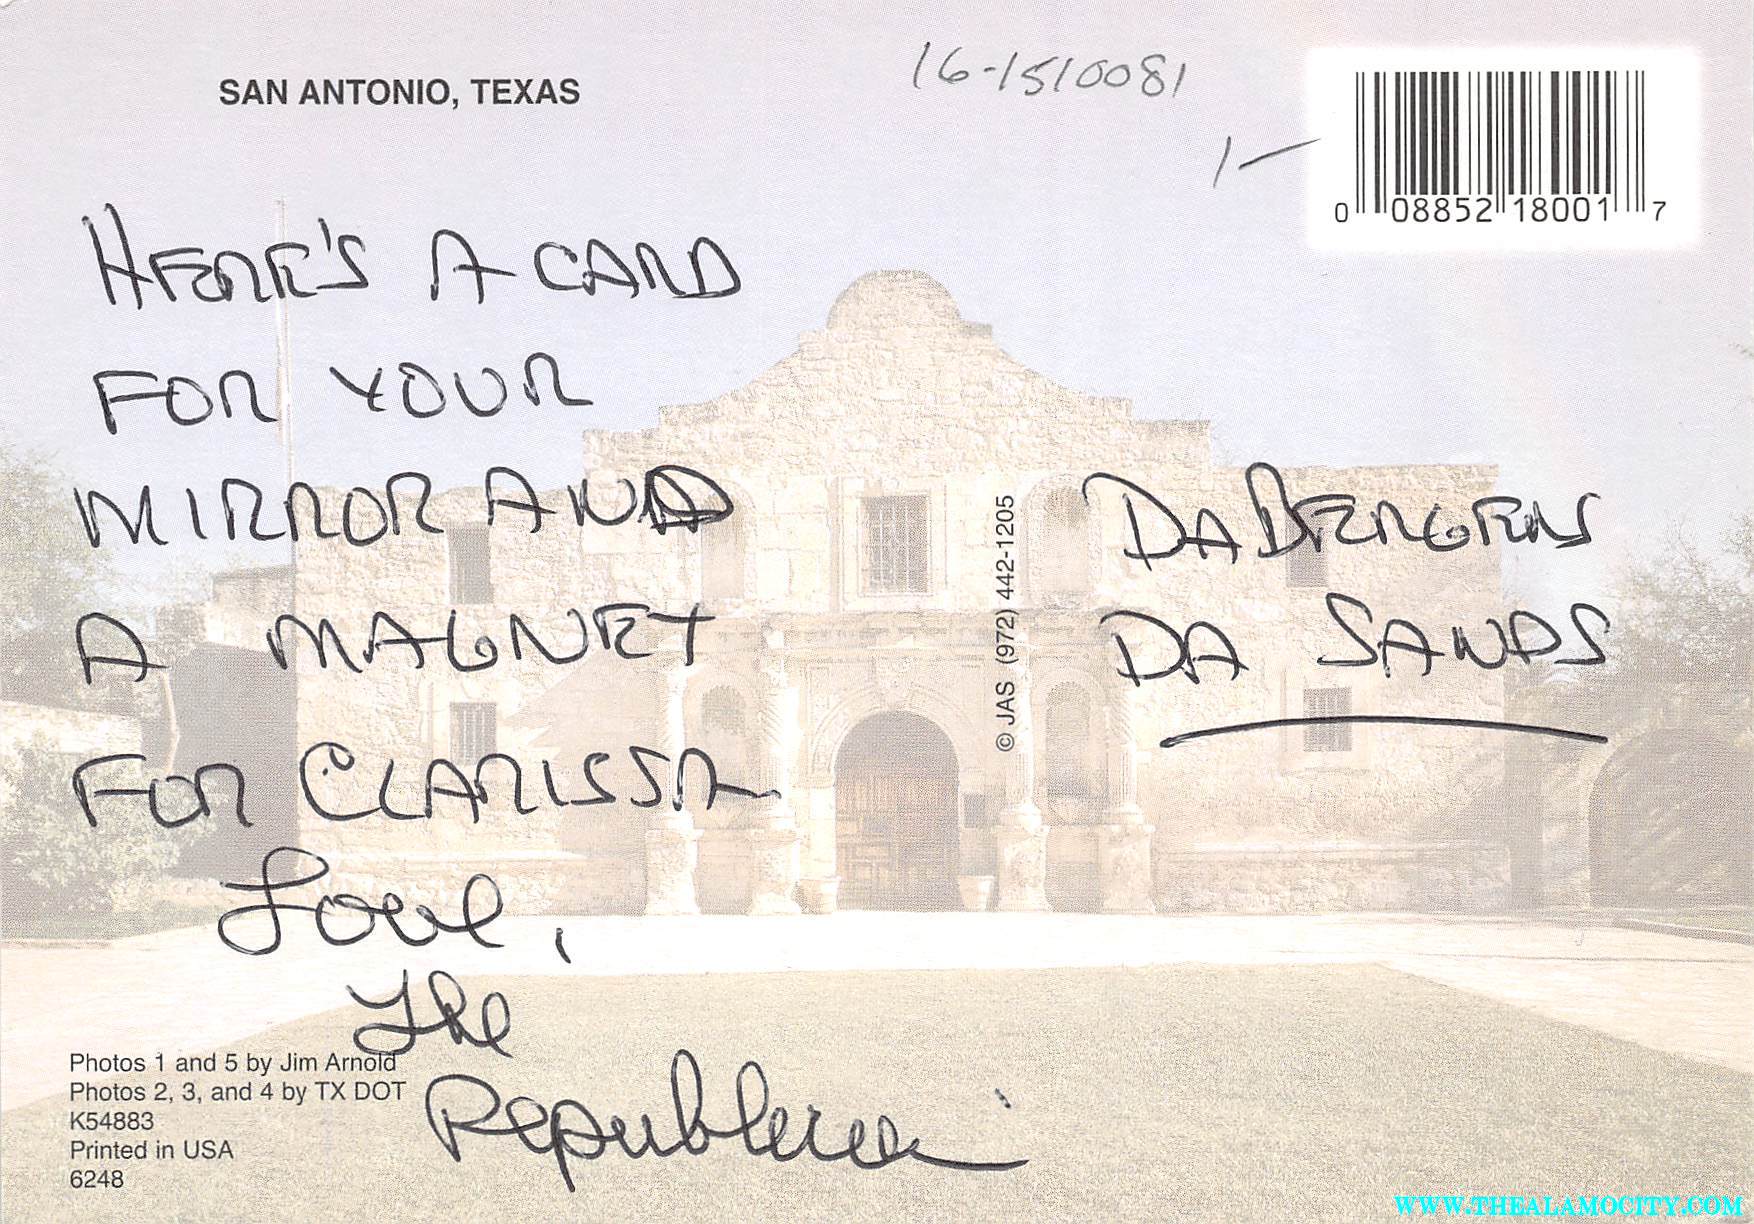 SAN ANTONIO, TEXAS
16-1510081
1-
0 08852 18001 7
HERE'S A CARD
FOR YOUR
MIRROR AND
A MAGNET
FOR CLARISSA
Love,
The
Republican
DABERGENS
DA SANDS
© JAS (972) 442-1205
Photos 1 and 5 by Jim Arnold
Photos 2, 3, and 4 by TX DOT
K54883
Printed in USA
6248
WWW.THEALAMOCITY.COM